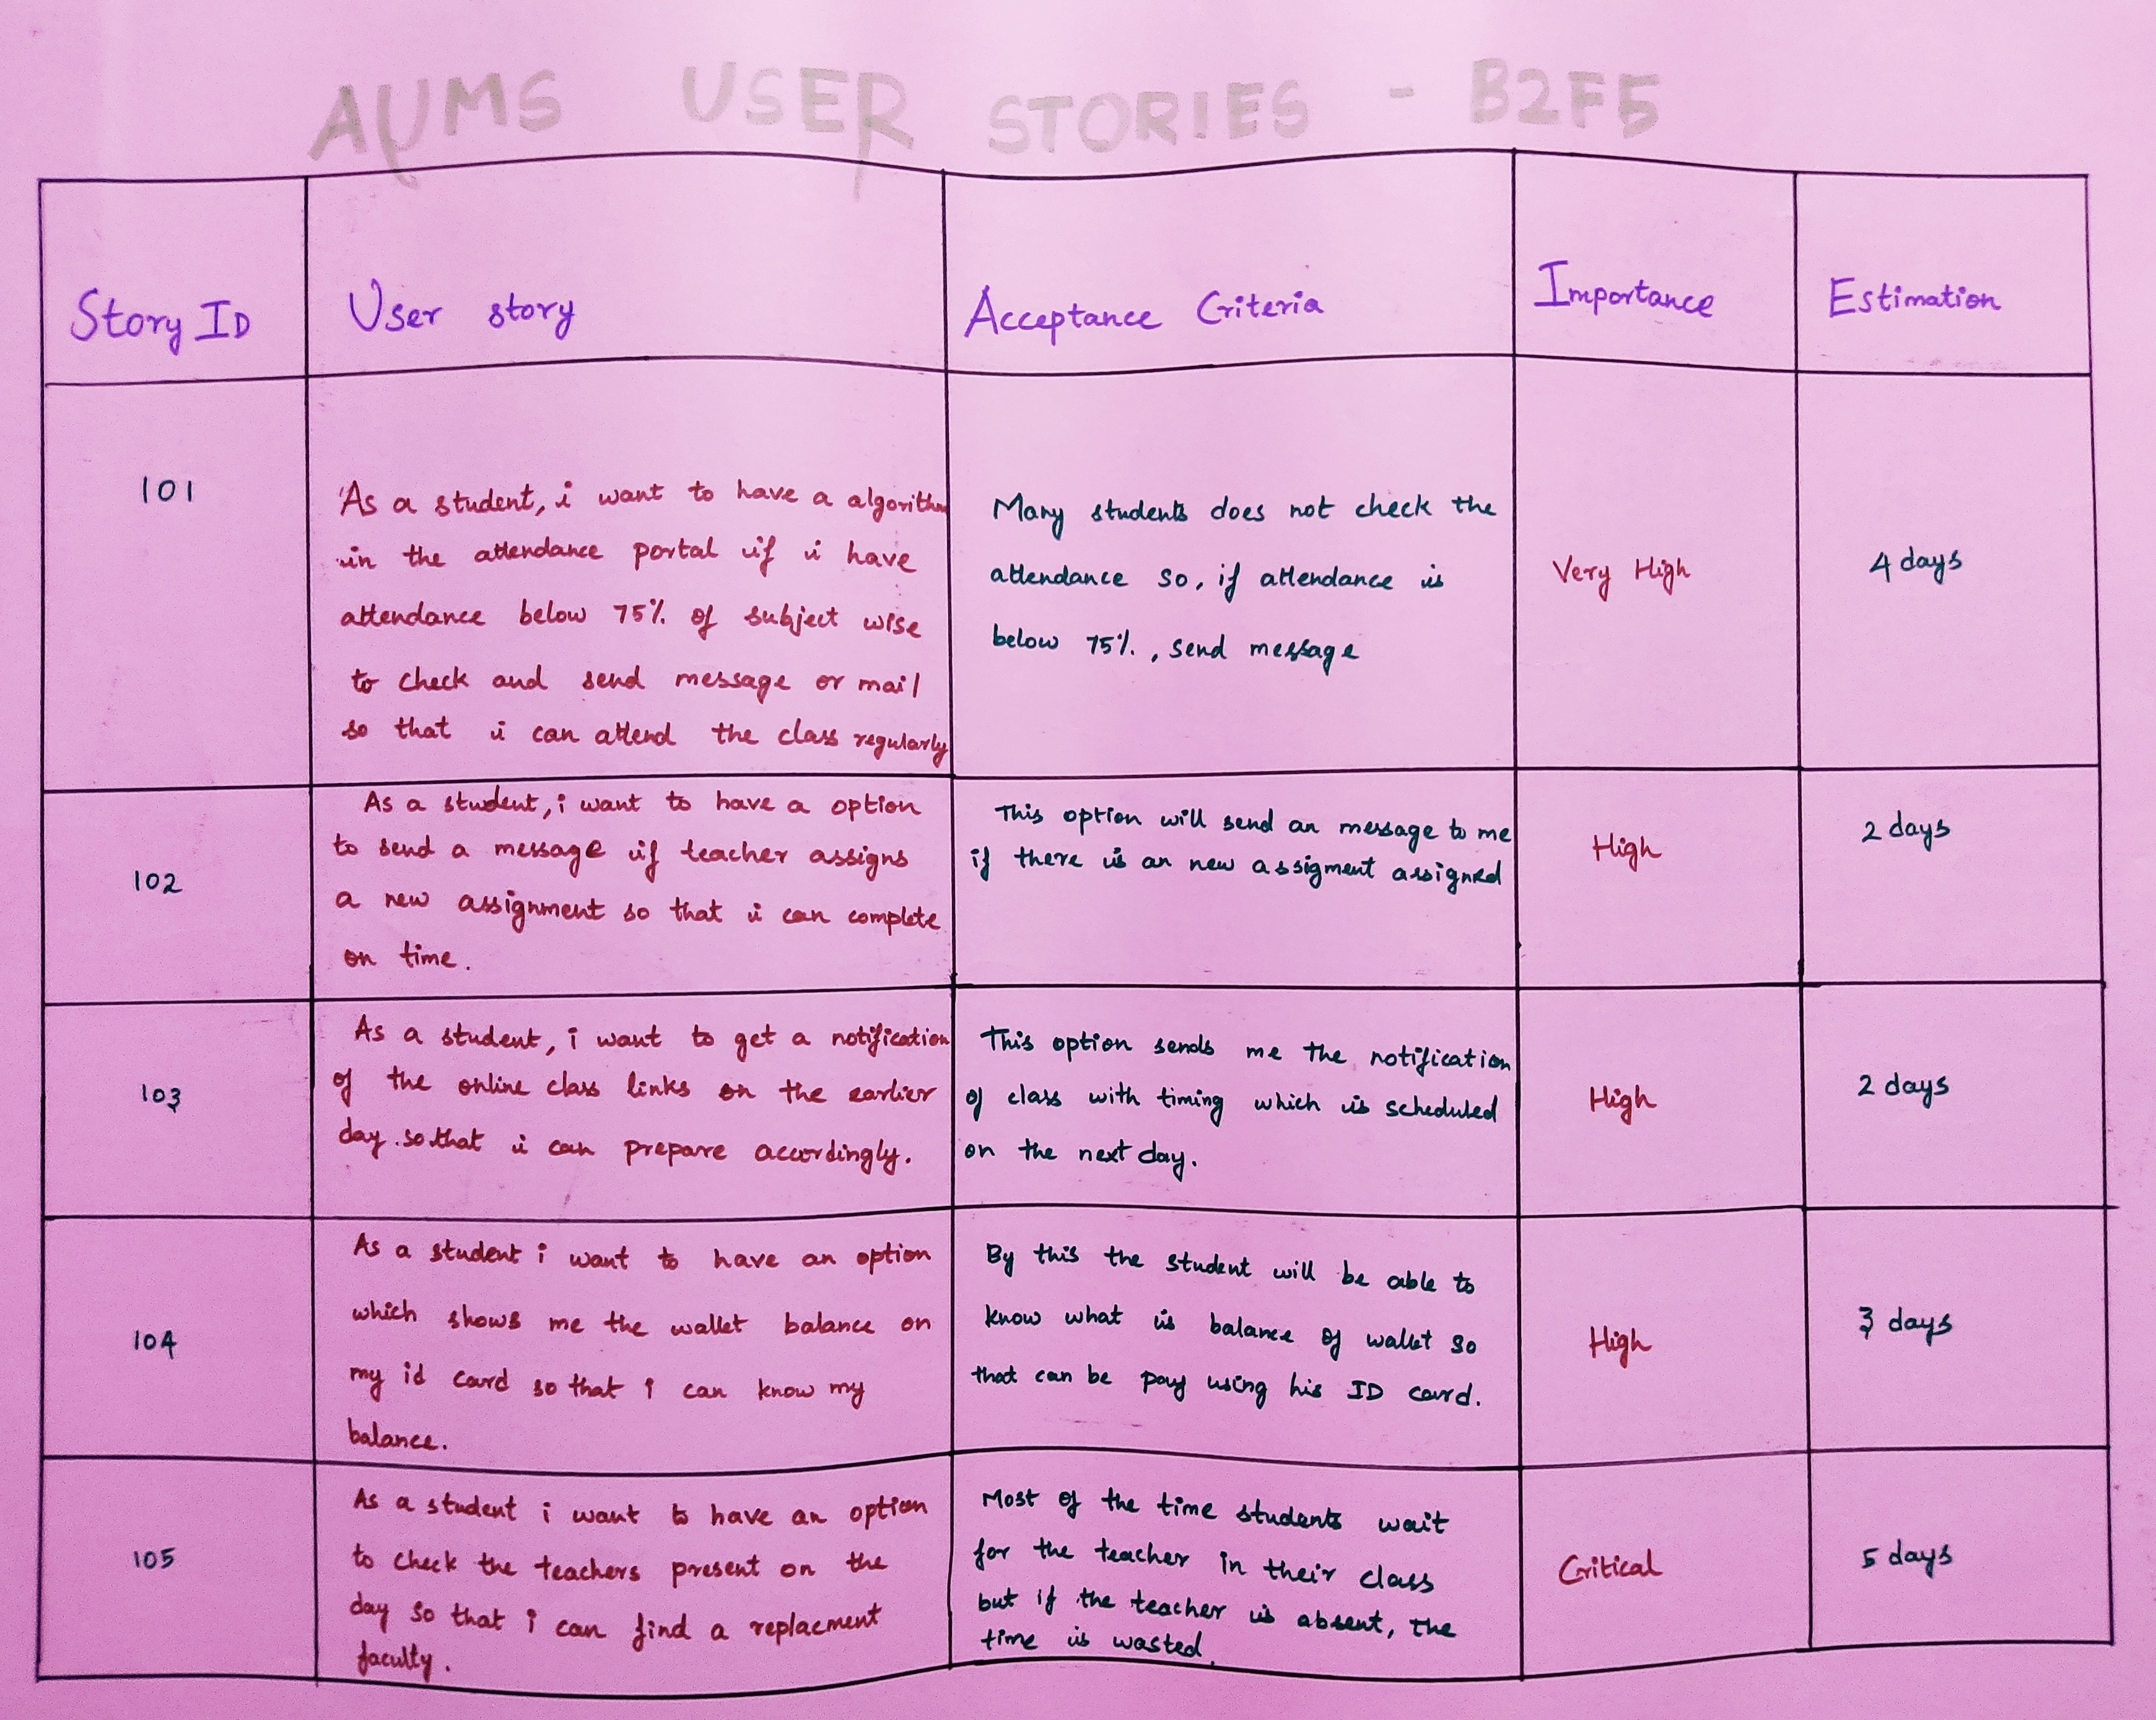 AUMS USER STORIES - B2F5
Story ID
User story
Acceptance Criteria
Importance
Estimation
101
As a student, i want to have a algorithm
in the attendance portal if i have
attendance below 75% of subject wise
to check and send message or mail
so that i can attend the class regularly
Many students does not check the
attendance so, if attendance is
below 75%, send message
Very High
4 days
102
As a student, i want to have a option
to send a message if teacher assigns
a new assignment so that i can complete
on time.
This option will send an message to me
if there is an new assigment assigned
High
2 days
103
As a student, i want to get a notification
of the online class links on the earlier
day so that i can prepare accordingly.
This option sends me the notification
of class with timing which is scheduled
on the next day.
High
2 days
104
As a student i want to have an option
which shows me the wallet balance on
my id card so that i can know my
balance.
By this the student will be able to
know what is balance of wallet so
that can be pay using his ID card.
High
3 days
105
As a student i want to have an option
to check the teachers present on the
day so that i can find a replacment
faculty.
Most of the time students wait
for the teacher in their class
but if the teacher is absent, the
time is wasted.
Critical
5 days